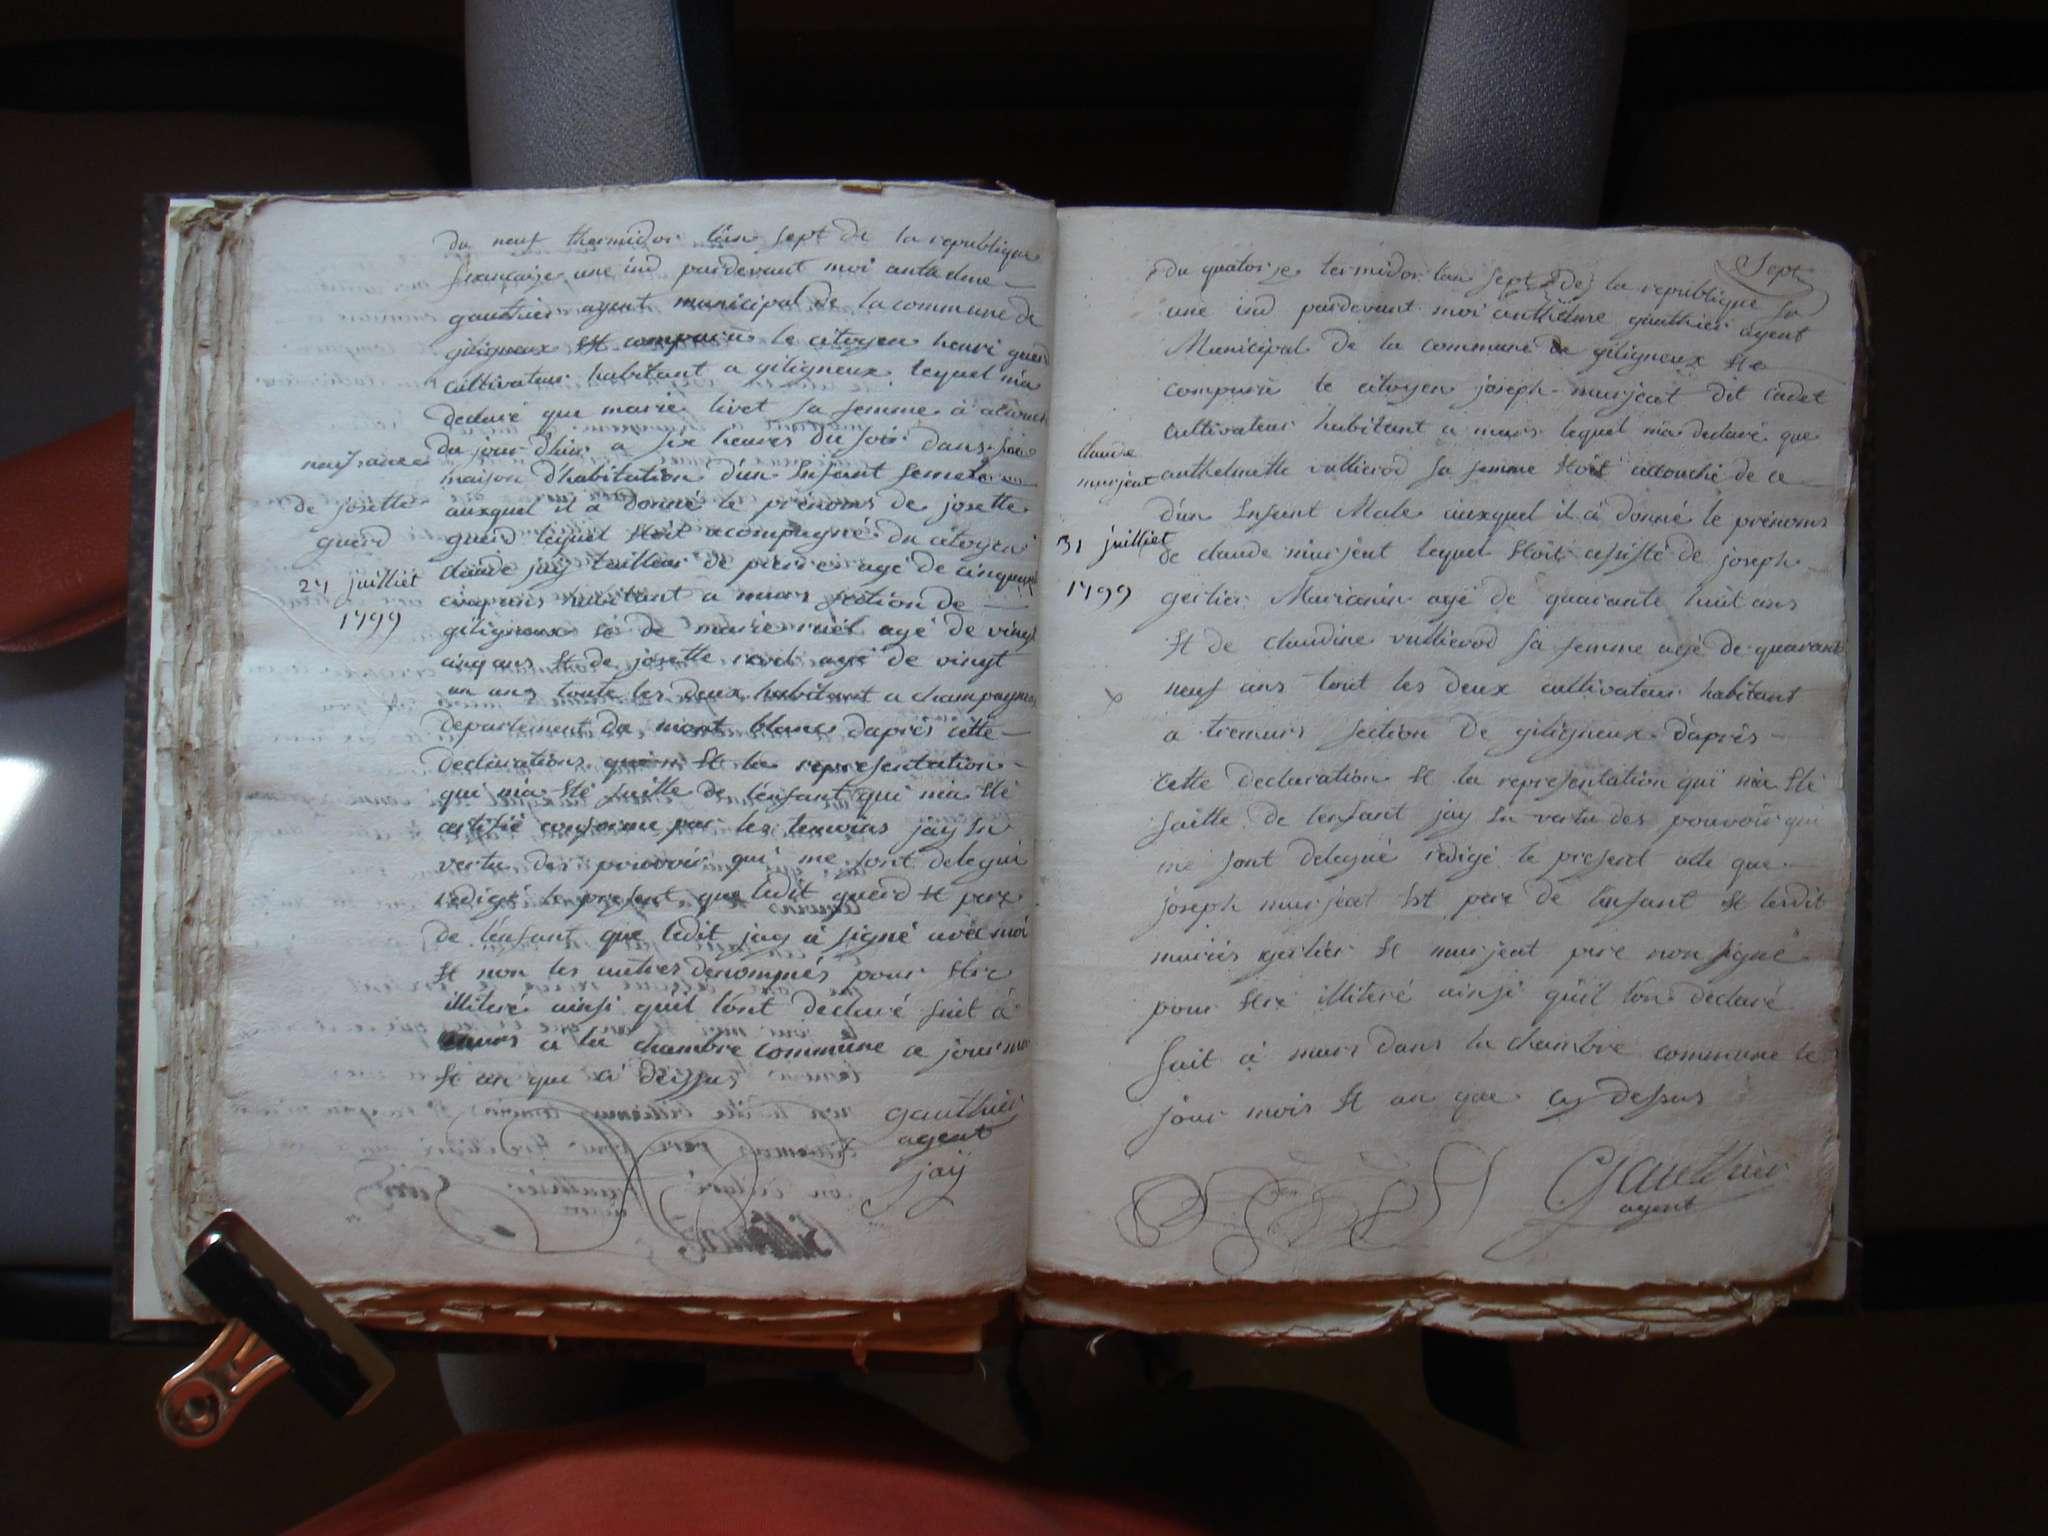 du neuf thermidor lan sept de la republique
francaise une ind pardevant moi antelme
gauthier agent municipal de la commune de
giligneux st comparu le citoyen henri guerd
cultivateur habitant a giligneux lequel ma
declaré que marie livet sa femme à
du jour dhier a six heures du soir dans sa
maison d'habitation d'un Enfant femelle
auxquel il a donné le prénoms de josette
guerd lequel Etoit acompagné du citoyen
claude jay tailleur de pierre agé de cinquante
cinq ans habitant a murs section de
giligneux de marie agé de vingt
cinq ans Et de josette agé de vingt
un ans toute les deux habitant a champagneux
departement du mont blanc daprès cette
declarations Et la representation
qui ma Eté faitte de lenfant qui ma Eté
certifié conforme par les temoins jay En
vertu des pouvoir qui me sont delegué
redigé le present que ledit guerd Et pere
de lenfant que ledit jay à signé avec moi
Et non les autres denommés pour Etre
illiteré ainsi quil lont declaré fait à
murs a la chambre commune a jour moi
Et an que ci dessus
gauthier
agent
jaÿ
naissance
de josette
guerd
27 juilliet
1799
Sept
du quatorze termidor lan sept de la republique
une ind pardevant moi anthelme gauthier agent
Municipal de la commune de giligneux Et
comparu le citoyen joseph murjeat dit cadet
cultivateur habitant a murs lequel ma declaré que
anthelmette vullierod sa femme Etoit accouché de ce
d'un Enfant Male auxquel il à donné le prénoms
de claude murjeat lequel Etoit assisté de joseph
gerlier Marinier agé de quarante huit ans
Et de claudine vullierod sa femme agé de quarante
neuf ans tout les deux cultivateur habitant
a tremurs section de giligneux daprés
cette declaration Et la representation qui ma Eté
faitte de lenfant jay En vertu des pouvoir qui
me sont delegué redigé le present acte que
joseph murjeat Est pere de lenfant Et lesdit
mariés gerlier Et murjeat pere non signé
pour Etre illiteré ainsi quil lon declaré
fait à murs dans la chambre commune le
jour mois Et an que cy dessus
Gauthier
agent
claude
murjeat
31 juilliet
1799